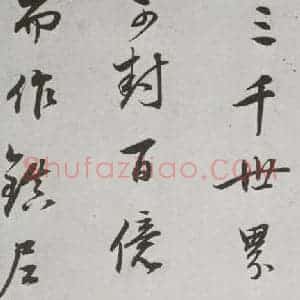 三千世界
可封百億
而作鎮尼
Shufazidao.com